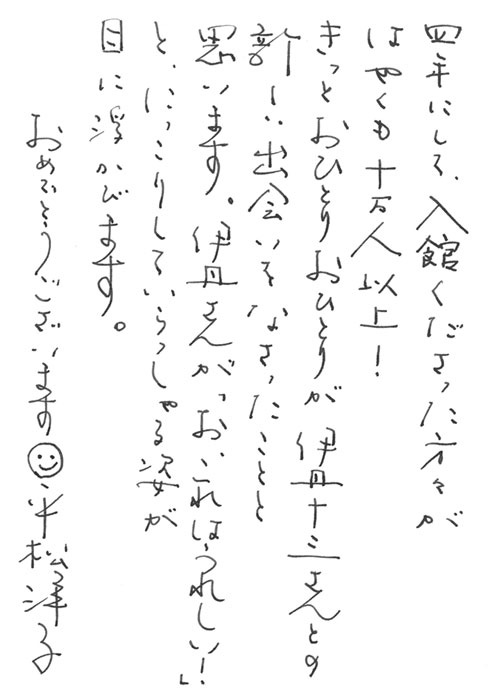 四年にして、入館くださった方々が
はやくも十万人以上！
きっとおひとりおひとりが伊丹十三さんとの
新しい出会いをなさったことと
思います。伊丹さんが「お、これはうれしい！」
と、にっこりしていらっしゃる姿が
目に浮かびます。
おめでとうございます☺平松洋子